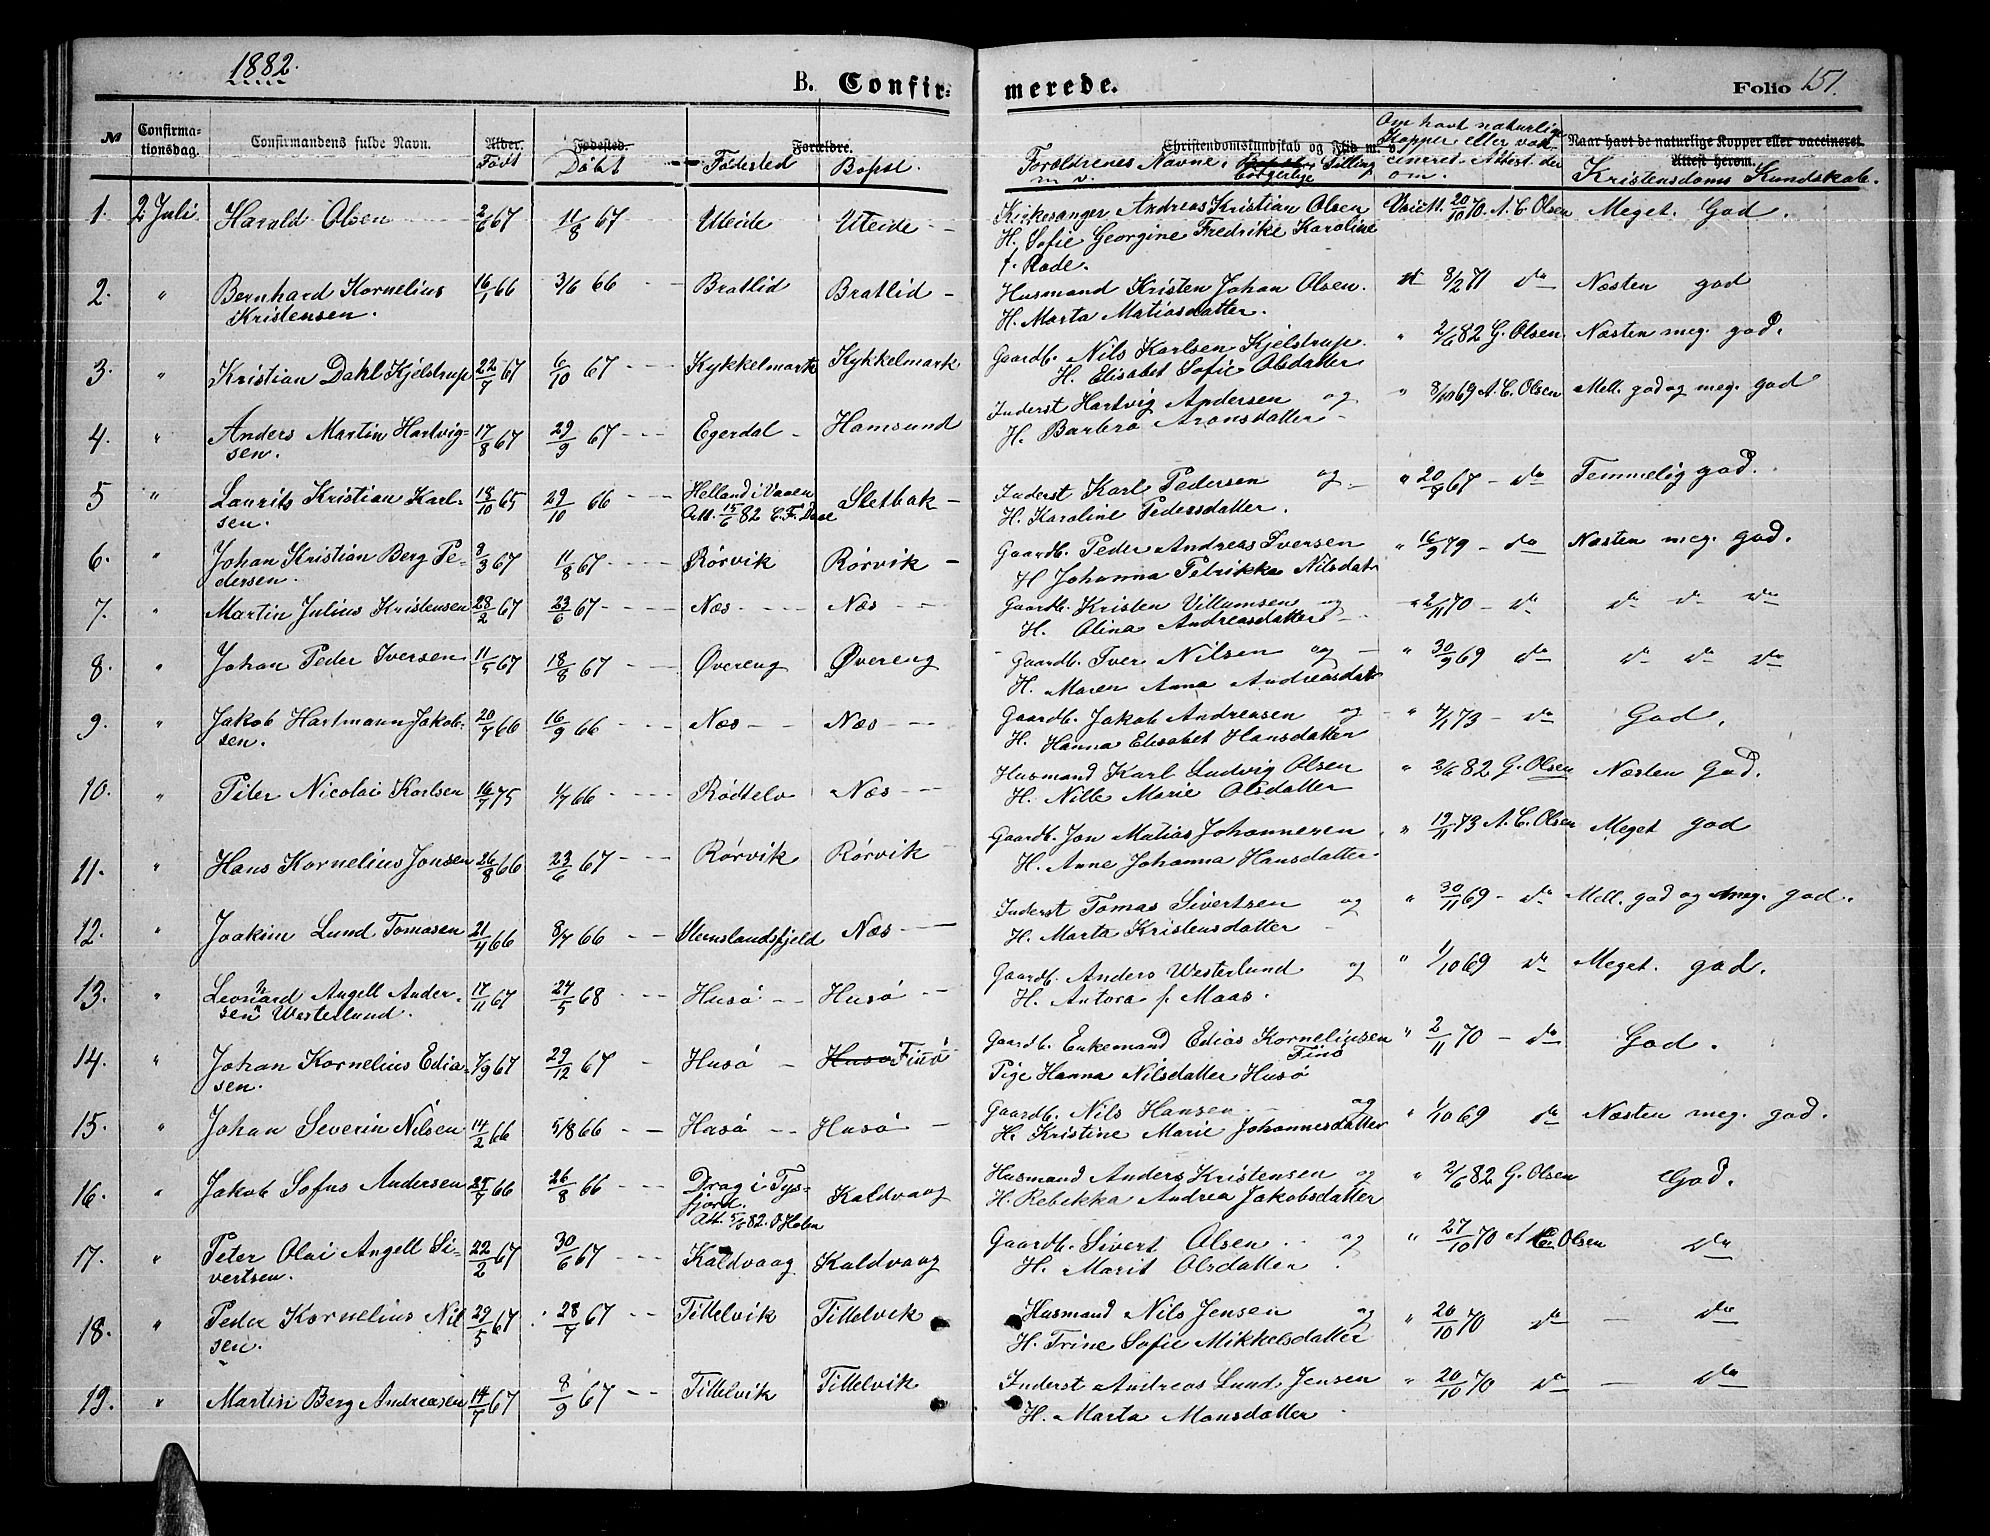 1882.
B. Confir-
merede.
Folio 151.
№ Confirma-tionsdag. Confirmandens fulde Navn. Alder. Født Fødested. Døbt Forældre. Fødested Bopæl. Christendomskundskab og Flid m. v. Forældrenes Navne, Bopæl, borgerlige Stilling m v. Om havt naturlige Kopper eller vaccineret. Attest derom. Naar havt de naturlige Kopper eller vaccineret. Attest herom. Kristendoms Kundskab.
1. 2 Juli Harald Olsen 2/6 67 11/8 67 Uteide Uteide Kirkesanger Andreas Kristian Olsen Vacic. 20/10 70 A. C. Olsen Meget God.
H. Sofie Georgine Fredrikke Karoline
f. Rode.
2. " Bernhard Kornelius 16/1 66 3/6 66 Bratlid Bratlid Husmand Kristen Johan Olsen. 8/2 71 do Næsten god
Kristensen. H. Marta Matiasdatter.
3. " Kristian Dahl Kjelstrup 22/7 67 6/10 67 Kykkelmark Kykkelmark Gaardb. Nils Karlsen Kjelstrup. " 2/6 82 G. Olsen Næsten meg. god.
H. Elisabet Sofie Olsdatter
4. " Anders Martin Hartvig- 17/8 67 29/9 67 Egerdal Hamsund Inderst Hartvig Andersen og " 8/10 69 A. C. Olsen Mell. god og meg. god
sen. H. Barbro Aronsdatter
5 " Laurits Kristian Karl- 18/10 65 29/10 66 Helland i Vaagen Sletbak Inderst Karl Pedersen og " 20/7 67 do Temmelig god.
sen. Att. 15/6 82 C. F. Daae H. Karoline Pedersdatter.
6. " Johan Kristian Berg Pe- 3/3 67 11/8 67 Rørvik Rørvik Gaardb. Peder Andreas Iversen " 16/9 79 do Næsten meg. god.
dersen. H Johanna Petrikke Nilsdatr
7. " Martin Julius Kristensen 28/2 67 23/6 67 Næs Næs Gaardb. Kristen Villumsen og " 2/11 70 do do do do
H. Olina Andreasdatter
8. " Johan Peder Iversen 11/5 67 18/8 67 Øvereng Øvereng Gaardb. Iver Nilsen og " 30/9 69 do do do do
H. Maren Anna Andreasdatr
9. " Jakob Hartmann Jakob- 20/7 66 16/9 66 Næs Næs Gaardb. Jakob Andreasen og " 4/1 73 do God.
sen. H. Hanna Elisabet Hansdatter
10. " Peter Nicolai Karlsen 16/7 75 1/7 66 Rødtelv Næs Husmand Karl Ludvig Olsen " 2/6 82 G. Olsen Næsten God.
H. Nille Marie Olsdatter
11. " Hans Kornelius Jonsen 26/8 66 23/6 67 Rørvik Rørvik Gaardb. Jon Matias Johannesen " 19/11 73 A. C. Olsen Meget god
H. Anne Johanna Hansdatter
12. " Joakim Lund Tomasen 21/4 66 8/7 66 Stenslandsfjeld Næs Inderst Tomas Sivertsen og " 30/11 69 do Mell. god og meg. god.
H. Marta Kristensdatter
13. " Leonhard Angell Ander- 17/11 67 24/5 68 Husø Husø Gaardb. Anders Westerlund og " 1/10 69 do Meget. god.
sen Westerlund. H. Antora f. Maas.
14. " Johan Kornelius Edia- 7/9 67 29/12 67 Husø Husø Finø Gaardb. Enkemand Edias Korneliusen Finø " 2/11 70 do God.
sen. Pige Hanna Nilsdatter Husø
15. " Johan Severin Nilsen 14/2 66 5/8 66 Husø Husø Gaardb. Nils Hansen og " 1/10 69 do Næsten meg. god.
H. Kristine Marie Johannesdatter
16. " Jakob Sofus Andersen 25/7 66 26/8 66 Drag i Tys- Kaldvaag Husmand Anders Kristensen og " 2/6 82 G. Olsen God.
fjord. Att. 5/6 82. Holm H. Rebekka Andrea Jakobsdatter
17. " Peter Olai Angell Si- 22/2 67 30/6 67 Kaldvaag Kaldvaag Gaardb. Sivert Olsen og " 27/10 70 A C Olsen do
vertsen. H. Marit Olsdatter
18. " Peder Kornelius Nil 29/5 67 28/7 67 Tittelvik Tittelvik Husmand Nils Jensen og " 20/10 70 do do
sen. H. Trine Sofie Mikkelsdatter
19. " Martin Berg Andreasen 14/7 67 8/9 67 Tittelvik Tittelvik Inderst Andreas Lund Jensen " 20/10 70 do do
H. Marta Monsdatter